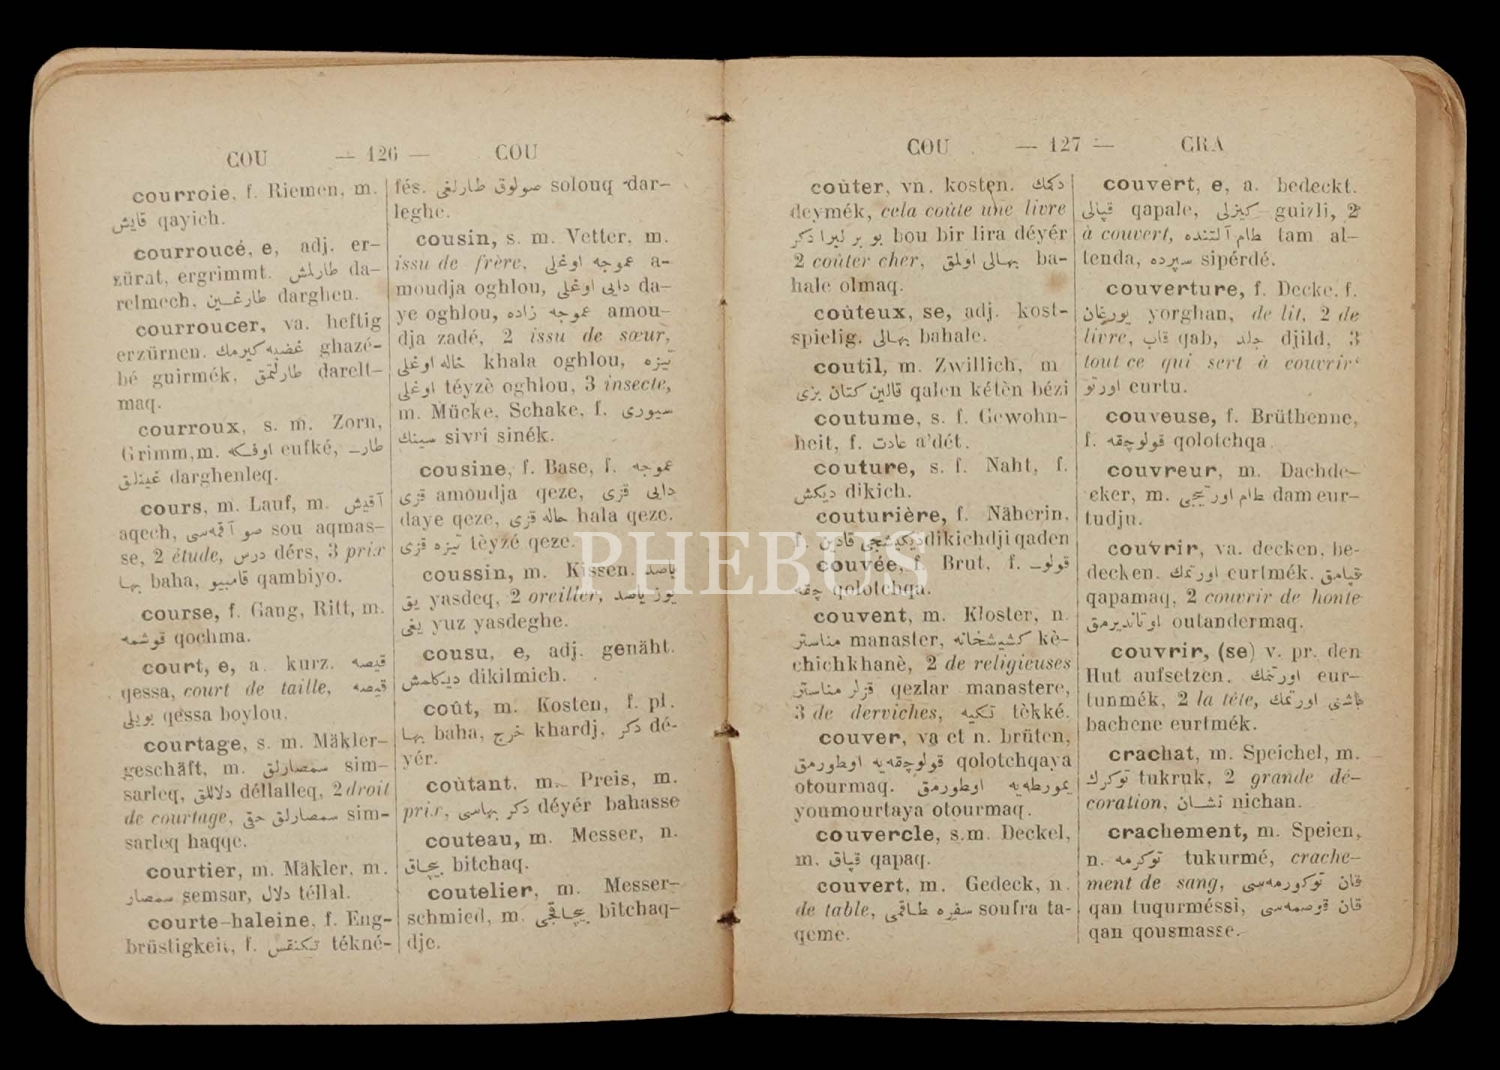 COU — 126 — COU
courroie, f. Riemen, m.
قایش qayich.
courroucé, e, adj. er-
zürat, ergrimmt. طارلمش da-
relmech, طارغین darghen.
courroucer, va. heftig
erzürnen. غضبه كیرمك ghazé-
bé guirmék, طارلتمق darelt-
maq.
courroux, s. m. Zorn,
Grimm, m. اوفكه eufké, طار-
غینلق darghenleq.
cours, m. Lauf, m. آقیش
aqech, صو آقمه‌سی sou aqmas-
se, 2 étude, درس dérs, 3 prix
بها baha, قامبیو qambiyo.
course, f. Gang, Ritt, m.
قوشمه qochma.
court, e, a. kurz. قیصه
qessa, court de taille, قیصه
بویلی qéssa boylou.
courtage, s. m. Mäkler-
geschäft, m. سمصارلق sim-
sarleq, دلاللق déllalleq, 2 droit
de courtage, سمصارلق حقی sim-
sarleq haqqe.
courtier, m. Mäkler, m.
سمصار semsar, دلال téllal.
courte-haleine, f. Eng-
brüstigkeit, f. تیكنفس tékné-
fés. صولوق طارلغی solouq dar-
leghe.
cousin, s. m. Vetter, m.
issu de frère, عموجه اوغلی a-
moudja oghlou, دایی اوغلی da-
ye oghlou, عموجه زاده amou-
dja zadé, 2 issu de sœur,
خاله اوغلی khala oghlou, تیزه
اوغلی téyzè oghlou, 3 insecte,
m. Mücke, Schake, f. سیوری
سینك sivri sinék.
cousine, f. Base, f. عموجه
قزی amoudja qeze, دایی قزی
daye qeze, حاله قزی hala qeze.
تیزه قزی tèyzé qeze.
coussin, m. Kissen. یاصد
یق yasdeq, 2 oreiller, یوز یاصد
یغی yuz yasdeghe.
cousu, e, adj. genäht.
دیكلمش dikilmich.
coût, m. Kosten, f. pl.
بها baha, خرج khardj, دكر dé-
yér.
coûtant, m. Preis, m.
prix, دكر بهاسی déyér bahasse
couteau, m. Messer, n.
بیچاق bitchaq.
coutelier, m. Messer-
schmied, m. بیچاقجی bitchaq-
dje.
COU — 127 — CRA
coûter, vn. kosten. دكمك
deymék, cela coûte une livre
بو بر لیرا دكر bou bir lira déyér
2 coûter cher, بهالی اولمق ba-
hale olmaq.
coûteux, se, adj. kost-
spielig. بهالی bahale.
coutil, m. Zwillich, m
قالین كتان بزی qalen kétèn bézi
coutume, s. f. Gewohn-
heit, f. عادت a'dét.
couture, s. f. Naht, f.
دیكش dikich.
couturière, f. Näherin,
f. دیكیشجی قادین dikichdji qaden
couvée, f. Brut, f. قولو-
چقه qolotchqa.
couvent, m. Kloster, n.
مناستر manaster, كشیشخانه kè-
chichkhanè, 2 de religieuses
قزلر مناستر qezlar manastere,
3 de derviches, تكیه tèkké.
couver, va et n. brüten,
قولوچقه‌یه اوطورمق qolotchqaya
otourmaq. یمورطه‌یه اوطورمق
youmourtaya otourmaq.
couvercle, s.m. Deckel,
m. قپاق qapaq.
couvert, m. Gedeck, n.
de table, سفره طاقمی soufra ta-
qeme.
couvert, e, a. bedeckt.
قپالی qapale, كیزلی guizli, 2
à couvert, طام آلتنده tam al-
tenda, سپرده sipérdé.
couverture, f. Decke, f.
یورغان yorghan, de lit, 2 de
livre, قاب qab, جلد djild, 3
tout ce qui sert à couvrir
اورتو eurtu.
couveuse, f. Brüthenne,
f. قولوچقه qolotchqa
couvreur, m. Dachde-
eker, m. طام اورتیجی dam eur-
tudju.
couvrir, va. decken, be-
decken. اورتمك eurtmék, قپامق
qapamaq, 2 couvrir de honte
اوتاندیرمق outandermaq.
couvrir, (se) v. pr. den
Hut aufsetzen. اورتنمك eur-
tunmék, 2 la tête, باشنی اورتمك
bachene eurtmék.
crachat, m. Speichel, m.
توكرك tukruk, 2 grande dé-
coration, نشان nichan.
crachement, m. Speien,
n. توكرمه tukurmé, crache-
ment de sang, قان توكورمه‌سی
qan tuqurméssi, قان قوصمه‌سی
qan qousmasse.
PHEBUS